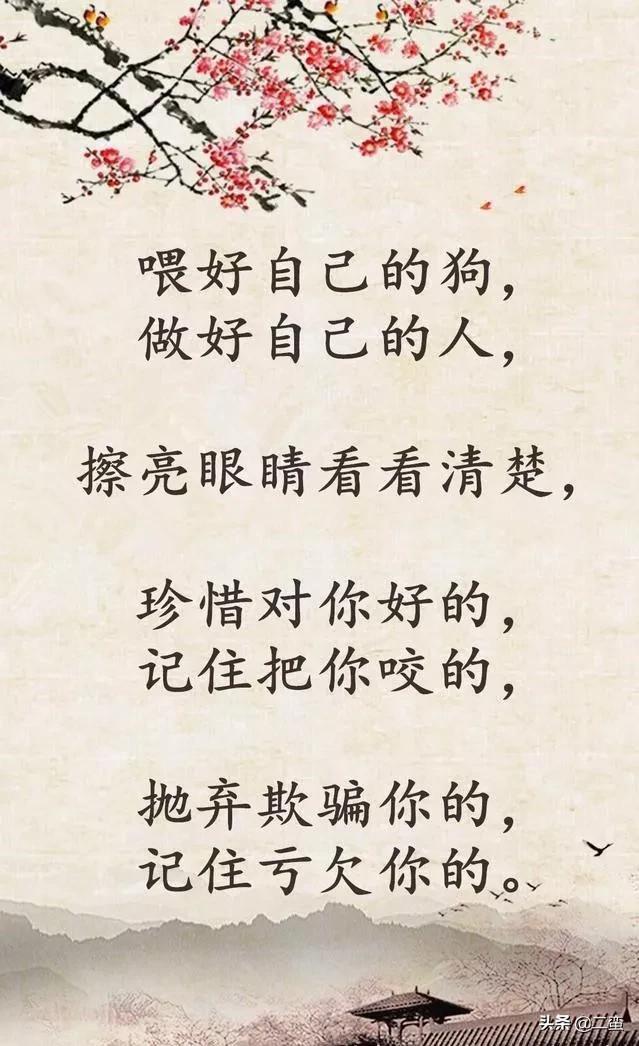 喂好自己的狗，
做好自己的人，
擦亮眼睛看看清楚，
珍惜对你好的，
记住把你咬的，
抛弃欺骗你的，
记住亏欠你的。
头条 @二蛮